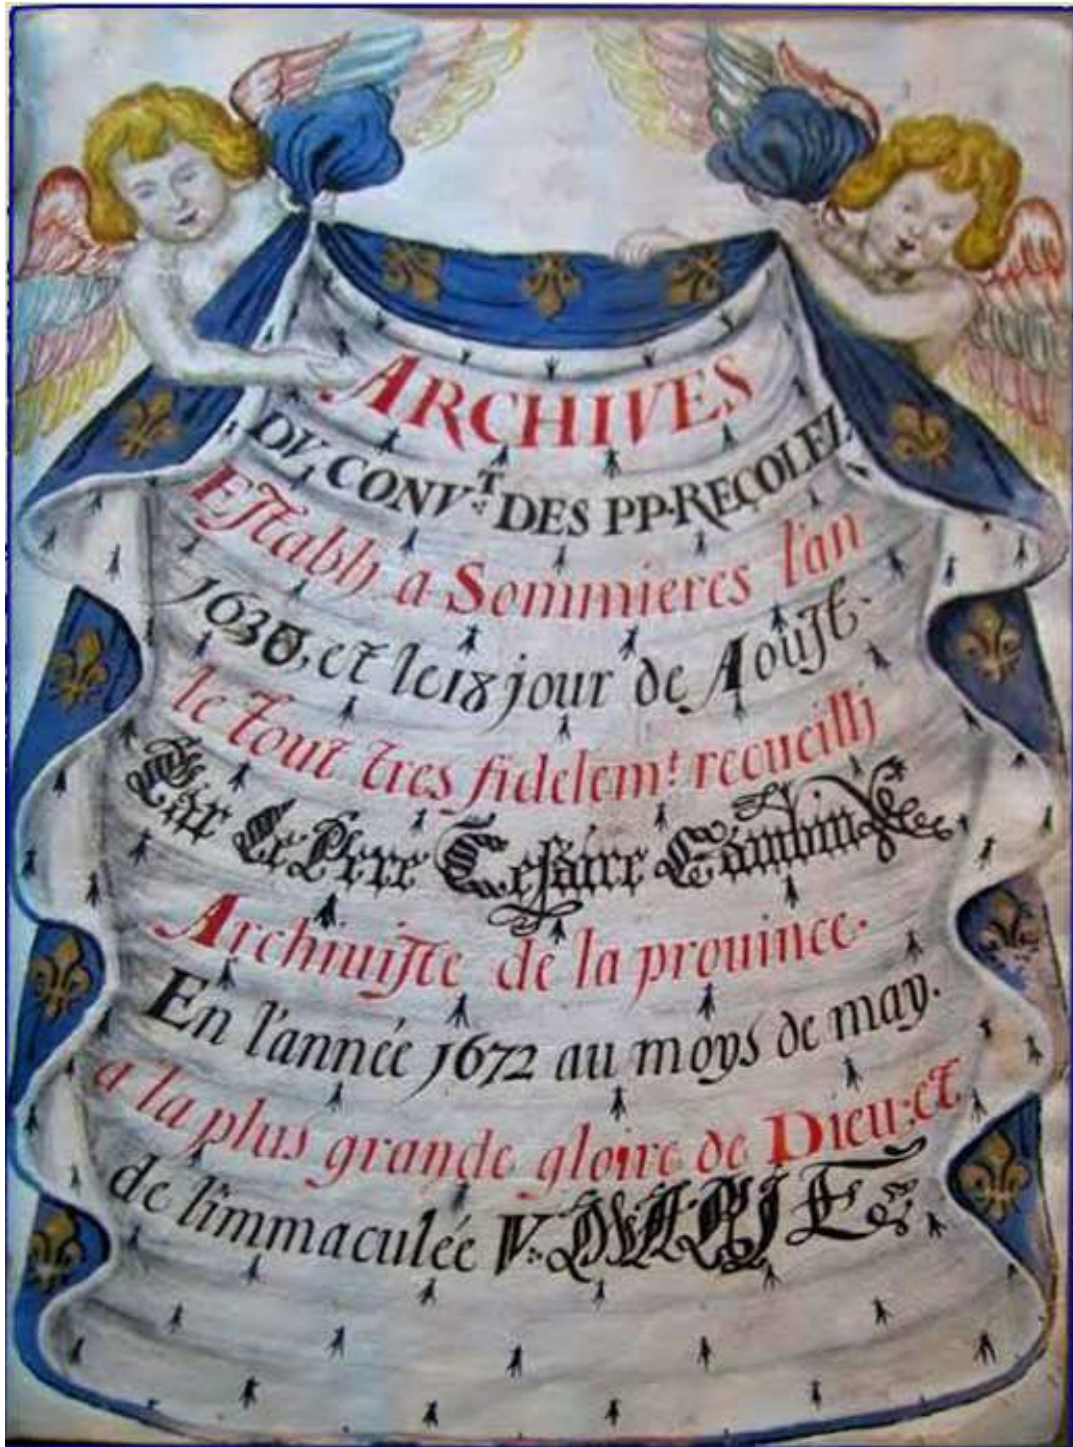 ARCHIVES
DV CONV.T DES PP. RECOLEZ
EStably a Sommieres l'an
1630, et le 18 jour de Aoust.
le tout tres fidelem.t recueilly
Par Le Pere Cesaire Cambin
Archiuiste de la prouince.
En l'année 1672 au moys de may.
a la plus grande gloire de Dieu: et
de l'immaculée V: MARIE